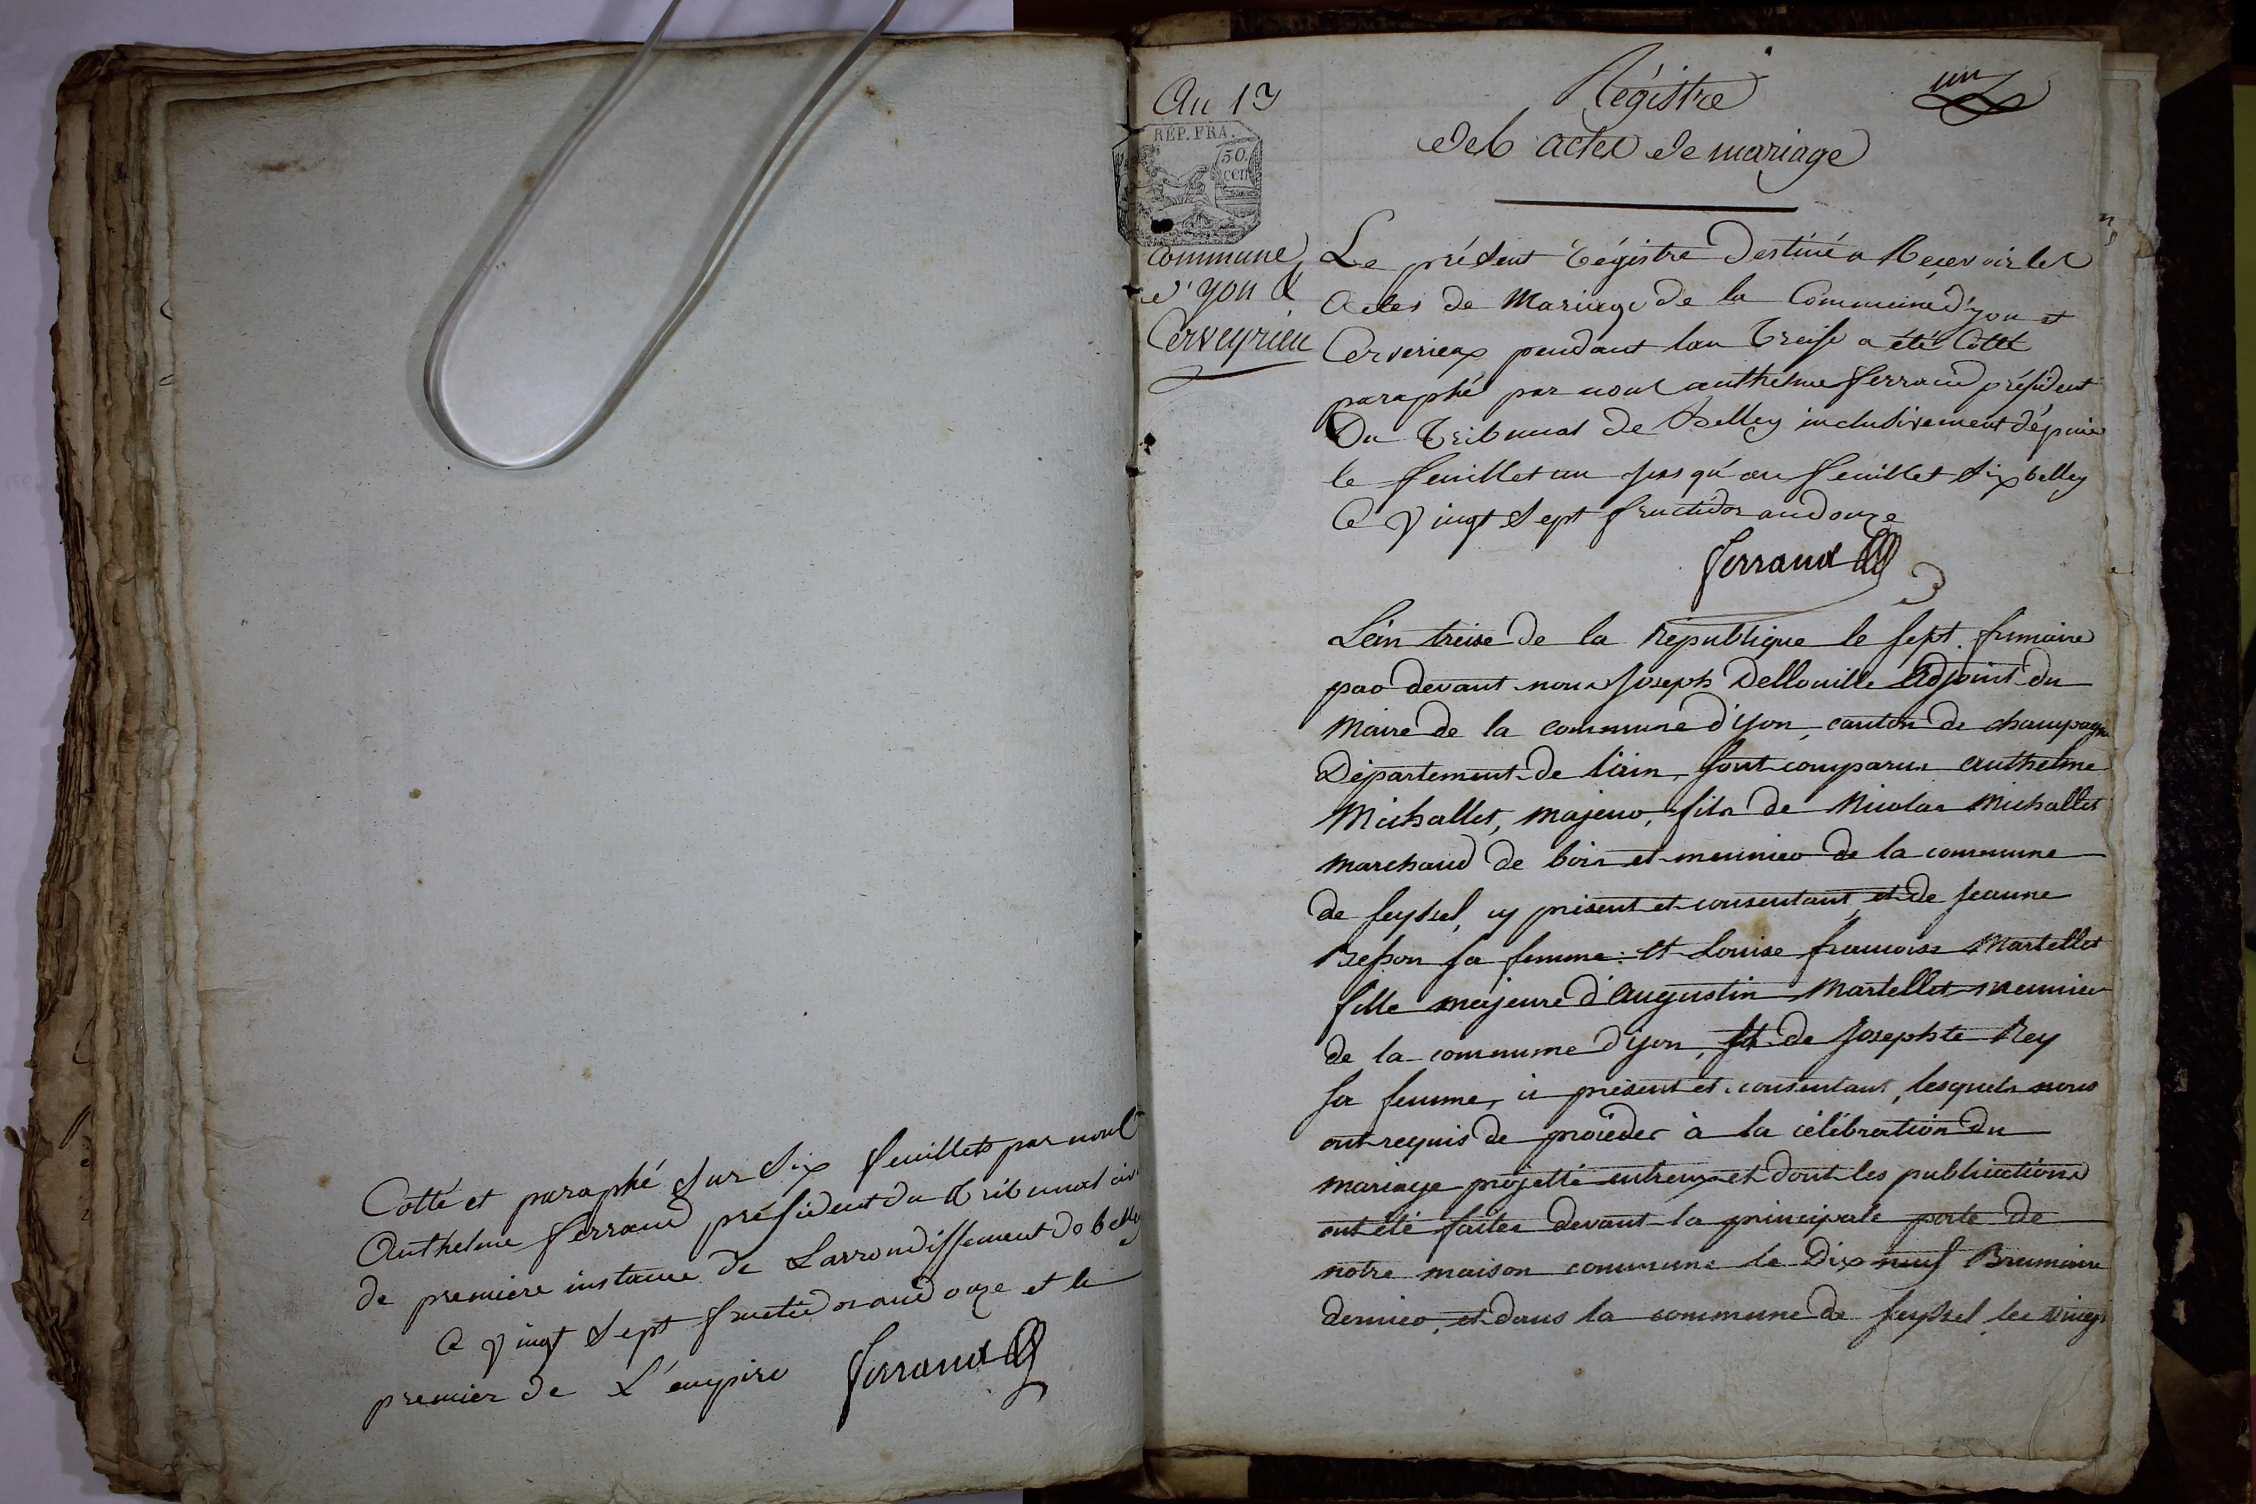 Cotté et paraphé sur six feuillets par nous
Anthelme ferrand président du tribunal civ
de premiere instance de Larrondissement de belley
Ce vingt sept fructidor an douze et le
premier de L'empire ferrand
An 13
RÉP. FRA.
50.
cen
commune
d'yon &
Cerveyrieu
un
Régistre
des actes de mariage
Le présent régistre destiné a Recevoir les
Actes de Mariage de la Commune d'yon et
Cerverieux pendant lan treise a été Cotté
paraphé par nous anthelme ferrand président
Du tribunal de Belley inclusivement dépuis
le feuillet un jusqu'au feuillet six belley
Ce vingt sept fructidor an douze
ferrand
L'an treise de la république le sept frimaire
par devant nous Joseph Dellouille adjoint du
Maire de la commune d'yon, canton de champagne
Département de l'ain, sont comparus anthelme
Michallet, majeur, fils de Nicolas Michallet
marchand de bois et meunier de la commune
de seyssel, cy présent et consentant, et de jeanne
Besson sa femme: et Louise francoise Martellet
fille majeure d'augustin Martellet meunier
de la commune d'yon, et de Josephte Rey
sa femme, ci présent et consentant, lesquels nous
ont requis de procéder à la célébration du
mariage projetté entreux et dont les publications
ont été faites devant la principale porte de
notre maison commune le Dix neuf Brumaire
dernier, et dans la commune de seyssel le vingt